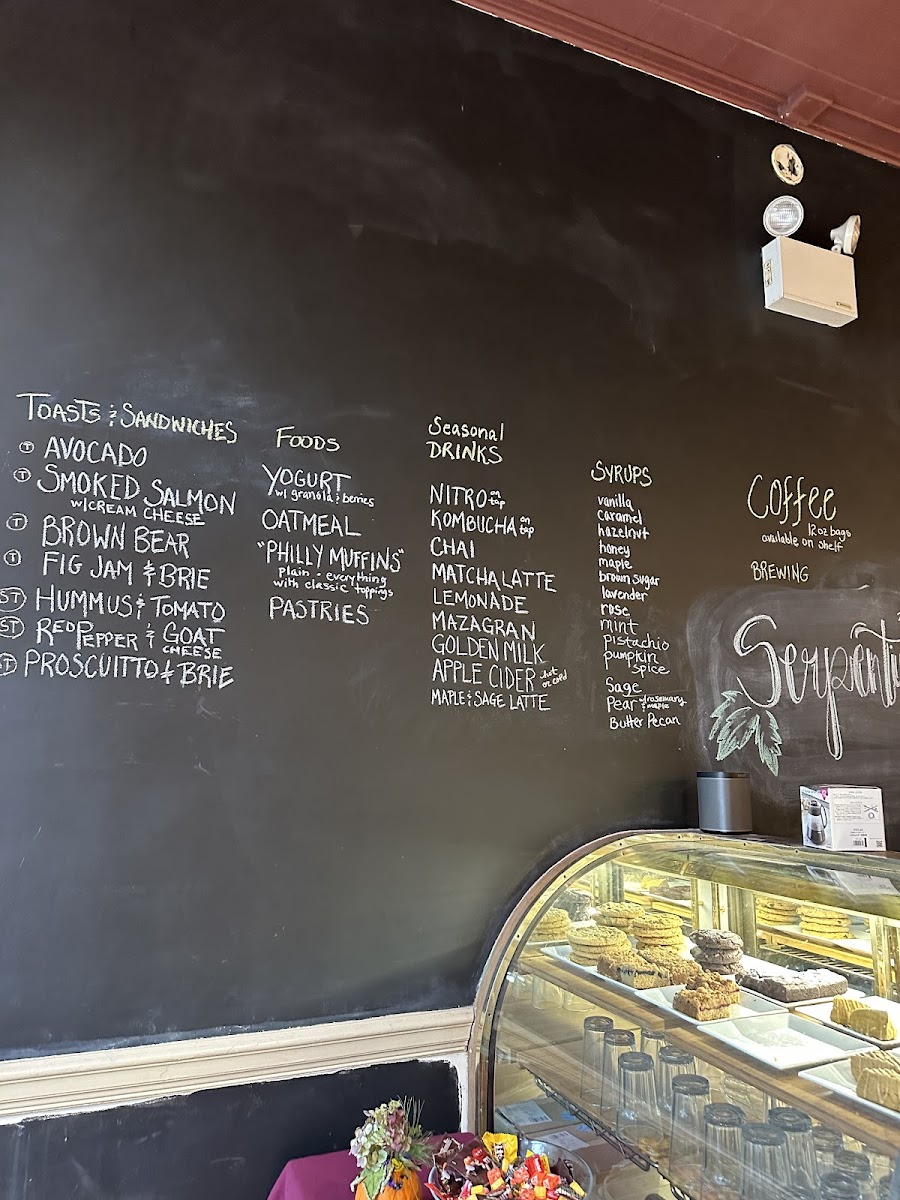 TOASTS & SANDWICHES
T AVOCADO
T SMOKED SALMON
W/CREAM CHEESE
T BROWN BEAR
T FIG JAM & BRIE
ST HUMMUS & TOMATO
ST RED PEPPER & GOAT
CHEESE
ST PROSCUITTO & BRIE
FOODS
YOGURT
w/ granola & berries
OATMEAL
"PHILLY MUFFINS"
plain & everything
with classic toppings
PASTRIES
Seasonal
DRINKS
NITRO on tap
KOMBUCHA on tap
CHAI
MATCHA LATTE
LEMONADE
MAZAGRAN
GOLDEN MILK
APPLE CIDER hot or cold
MAPLE & SAGE LATTE
SYRUPS
vanilla
caramel
hazelnut
honey
maple
brown sugar
lavender
rose
mint
pistachio
pumpkin
spice
Sage
Pear w/rosemary & maple
Butter Pecan
Coffee
12 oz bags
available on shelf
BREWING